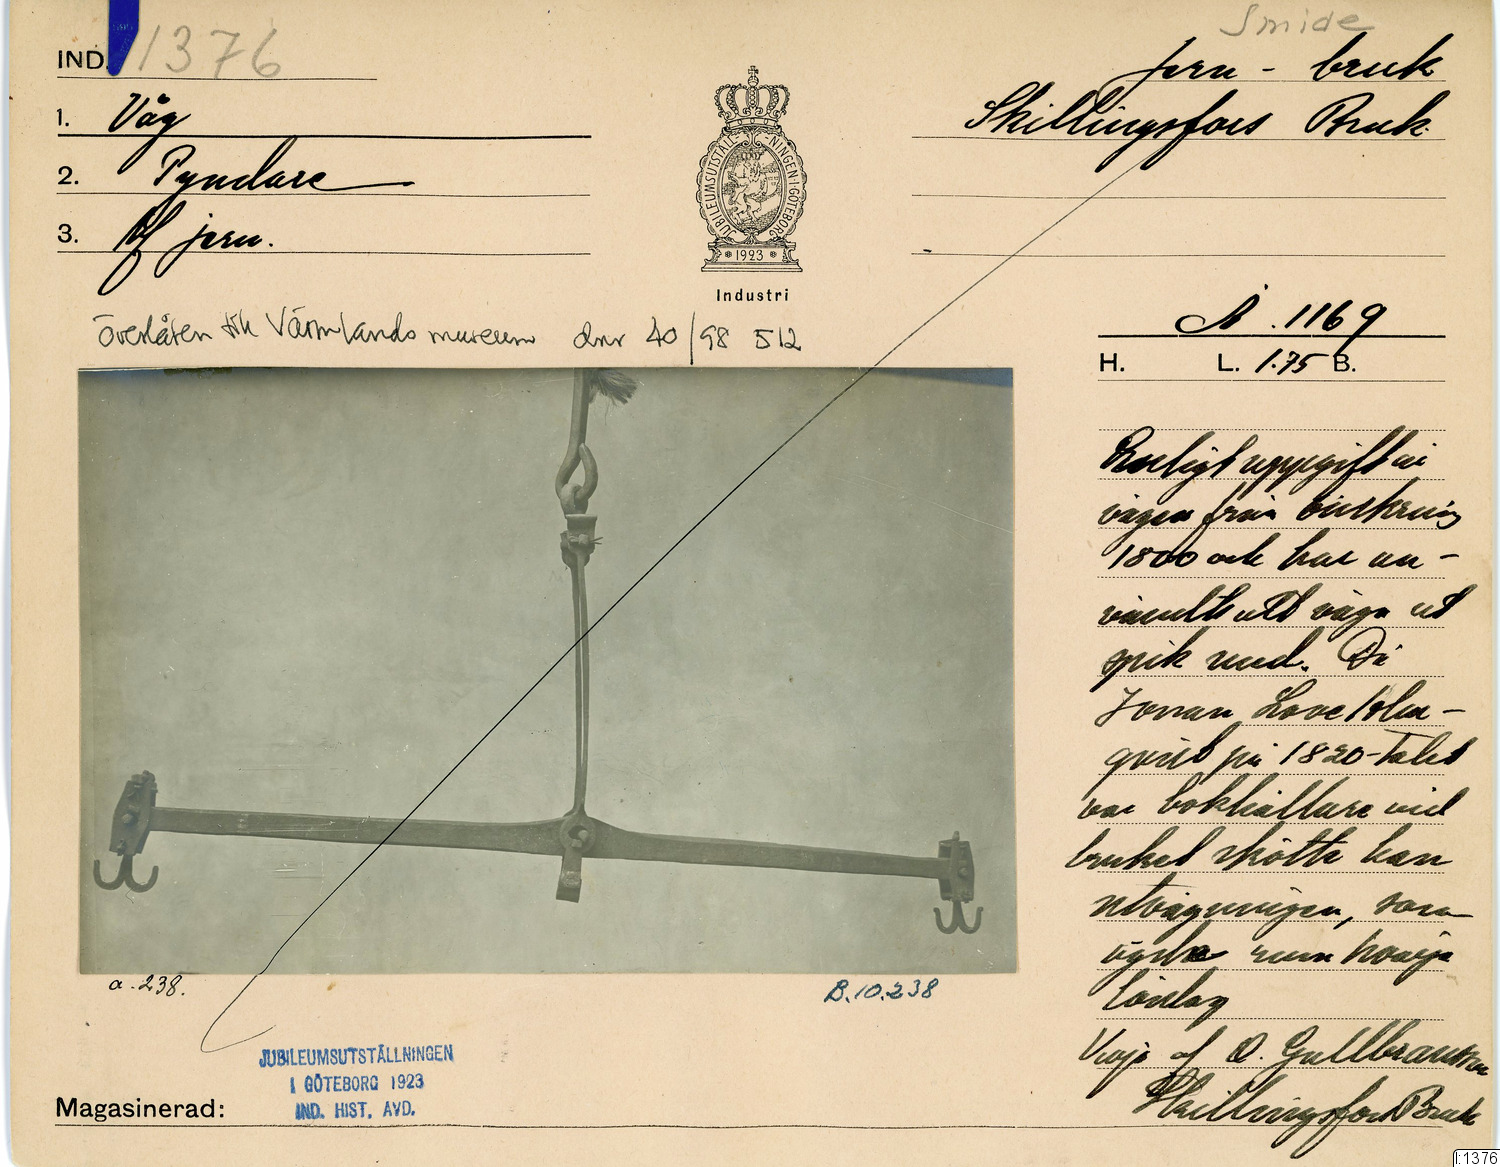 Smide
IND. 1376
Jern - bruk
1. Våg
Skillingsfors Bruk.
2. Pyndare
3. Af jern.
JUBILEUMSUTSTÄLLNINGEN I GÖTEBORG
* 1923 *
Industri
överlåten till Värmlands museum dnr 40/98 512
A. 1169
H. L. 1.75 B.
Enligt uppgift är
vågen från omkring
1800 och har an-
vändts att väga ut
spik med. Då
Jonan Love Alm-
qvist på 1820-talet
var bokhållare vid
bruket skötte han
utvägningen, som
ägde rum varje
lördag
O. Gullbransson
Skillingsfors Bruk
a. 238.
B.10.238
JUBILEUMSUTSTÄLLNINGEN
I GÖTEBORG 1923
IND. HIST. AVD.
Magasinerad:
I:1376